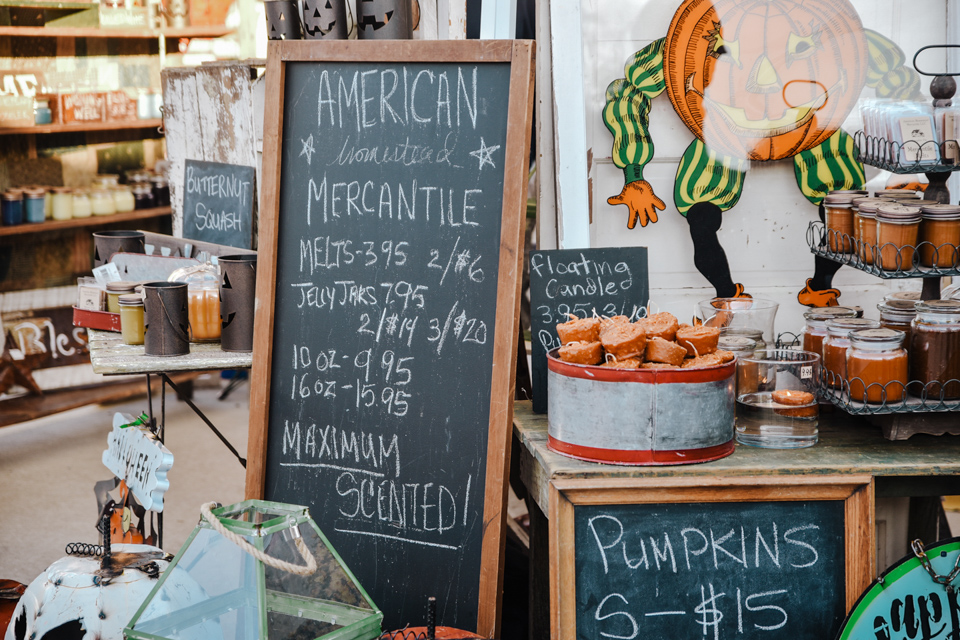 AMERICAN
homestead
MERCANTILE
MELTS-3.95 2/$6
JELLY JARS 7.95
2/$14 3/$20
10oz-9.95
16oz-15.95
MAXIMUM
SCENTED!
BUTTERNUT
SQUASH
Floating
Candles
3.95
PUMPKINS
S-$15